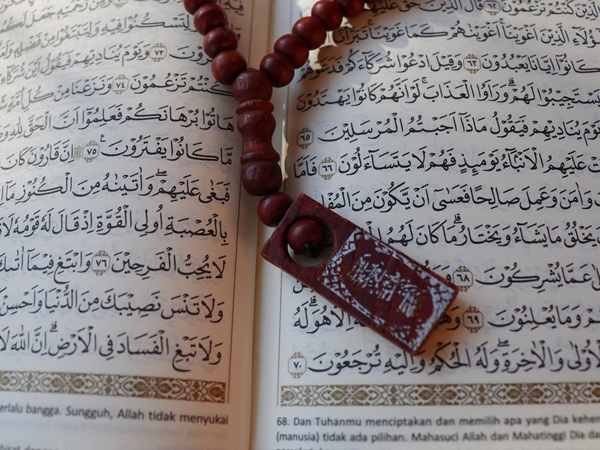 ٦٢ قَالَ الَّذِينَ
هَٰؤُلَاءِ الَّذِينَ أَغْوَيْنَا أَغْوَيْنَاهُمْ كَمَا غَوَيْنَا تَبَرَّأْنَا
كَانُوا إِيَّانَا يَعْبُدُونَ ٦٣ وَقِيلَ ادْعُوا شُرَكَاءَكُمْ فَدَعَوْهُمْ
يَسْتَجِيبُوا لَهُمْ وَرَأَوُا الْعَذَابَ لَوْ أَنَّهُمْ كَانُوا يَهْتَدُونَ
يَوْمَ يُنَادِيهِمْ فَيَقُولُ مَاذَا أَجَبْتُمُ الْمُرْسَلِينَ ٦٥
عَلَيْهِمُ الْأَنْبَاءُ يَوْمَئِذٍ فَهُمْ لَا يَتَسَاءَلُونَ ٦٦ فَأَمَّا
وَآمَنَ وَعَمِلَ صَالِحًا فَعَسَىٰ أَنْ يَكُونَ مِنَ
يَخْلُقُ مَا يَشَاءُ وَيَخْتَارُ مَا كَانَ لَهُمُ
عَمَّا يُشْرِكُونَ ٦٨
وَمَا يُعْلِنُونَ ٦٩ إِلَّا هُوَ لَهُ
الْأُولَىٰ وَالْآخِرَةِ وَلَهُ الْحُكْمُ وَإِلَيْهِ تُرْجَعُونَ ٧٠
68. Dan Tuhanmu menciptakan dan memilih apa yang Dia
(manusia) tidak ada pilihan. Mahasuci Allah dan Mahatinggi Dia
جَعَلَ لَكُمُ
وَالنَّهَارَ لِتَسْكُنُوا فِيهِ وَلِتَبْتَغُوا مِنْ فَضْلِهِ
٧٣ وَيَوْمَ يُنَادِيهِمْ فَيَقُولُ
كُنْتُمْ تَزْعُمُونَ ٧٤ وَنَزَعْنَا مِنْ كُلِّ أُمَّةٍ
هَاتُوا بُرْهَانَكُمْ فَعَلِمُوا أَنَّ الْحَقَّ لِلَّهِ
مَا كَانُوا يَفْتَرُونَ ٧٥ إِنَّ قَارُونَ كَانَ
فَبَغَىٰ عَلَيْهِمْ وَآتَيْنَاهُ مِنَ الْكُنُوزِ مَا
بِالْعُصْبَةِ أُولِي الْقُوَّةِ إِذْ قَالَ لَهُ قَوْمُهُ لَا
لَا يُحِبُّ الْفَرِحِينَ ٧٦ وَابْتَغِ فِيمَا آتَاكَ
وَلَا تَنْسَ نَصِيبَكَ مِنَ الدُّنْيَا وَأَحْسِنْ
وَلَا تَبْغِ الْفَسَادَ فِي الْأَرْضِ إِنَّ اللَّهَ لَا
terlalu bangga. Sungguh, Allah tidak menyukai